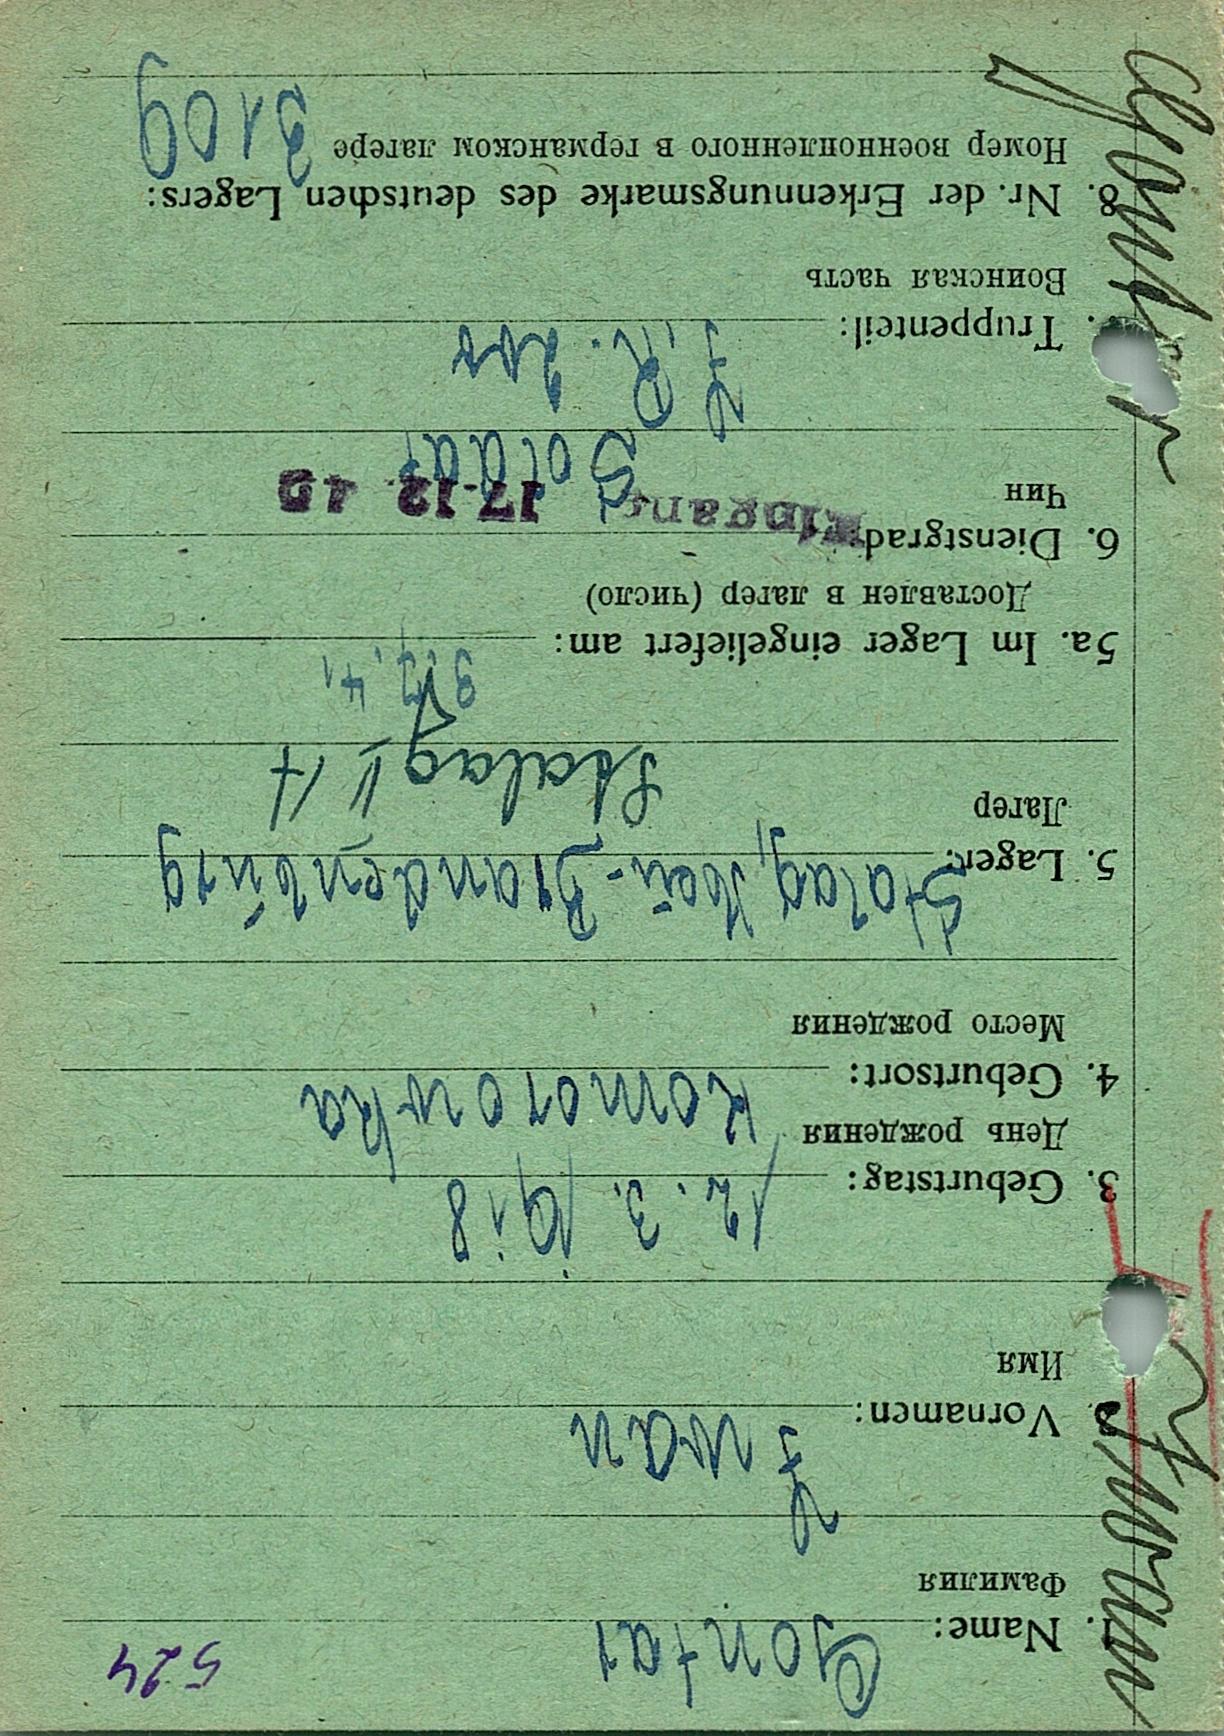 524
1. Name: Gontar
Фамилия
2. Vornamen: Iwan
Имя
3. Geburtstag: 12. 3. 1918
День рождения
4. Geburtsort: Komorowka
Место рождения
5. Lager: Stalag, Neu-Brandenburg
Лагер
Stalag II A
5a. Im Lager eingeliefert am: 9. 7. 41
Доставлен в лагер (число)
6. Dienstgrad: Soldat
Чин
Eingang 17. 12. 42
7. Truppenteil: J. R. 200
Воинская часть
8. Nr. der Erkennungsmarke des deutschen Lagers:
Номер военнопленного в германском лагере 3109
Iwan